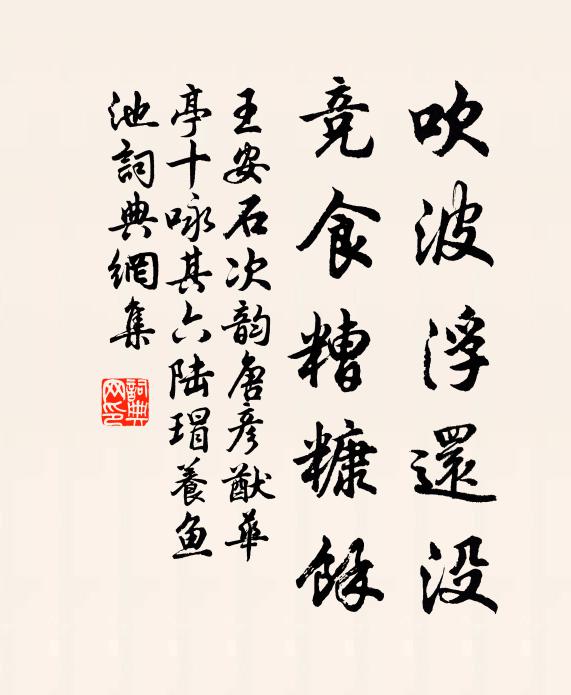 吹波浮還没
竞食糟糠餘
王安石次韵唐彦猷華
亭十咏其六陆瑁養魚
池詞典網集
詞典
网印